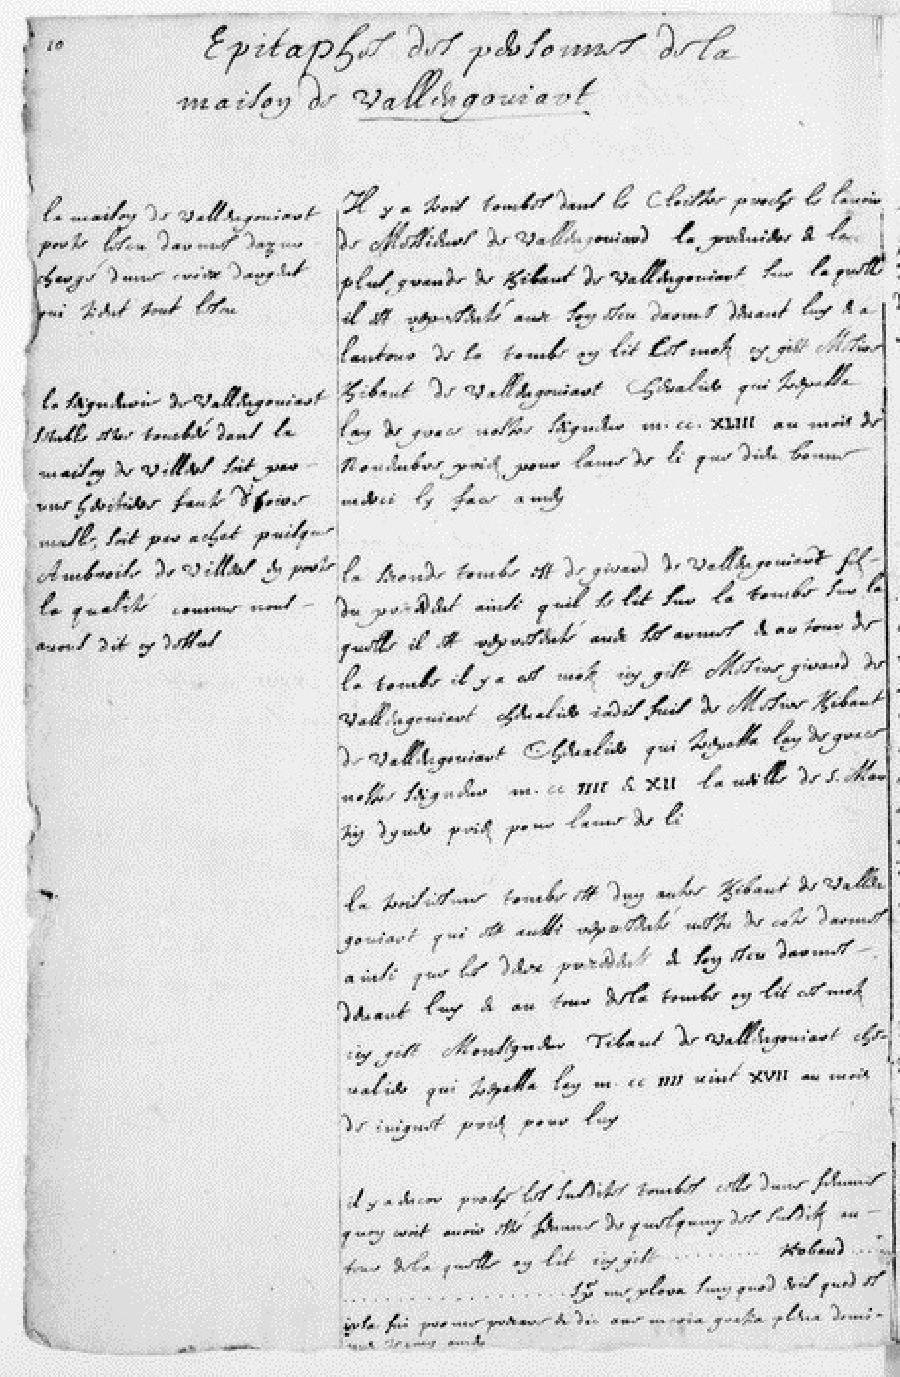 10
Epitaphes des personnes de la
maison de Valldengouiart
la maison de Valldengouiart
porte l'escu d'armes d'azur
chargé d'une croix d'argent
qui tient tout l'escu
la seigneurie de Valldengouiart
semble estre tombée dans la
maison de Villers soit par
une heritiere faute d'hoirs
masle, soit par achet puisque
Ambroise de Villers en porte
la qualité comme nous
avons dit cy dessus
Il y a trois tombes dans le Cloistre proche le lavoir
de Messieurs de Valldengouiard la premiere & la
plus grande de Thibaut de Valldengouiart sur laquelle
il est representé avec son escu d'armes devant luy & a
lentour de la tombe on lit ces mots cy gist Messire
Thibaut de Valldengouiart Chevalier qui trespassa
lan de grace nostre seigneur m. cc. XLIII au mois de
Novembre pries pour lame de li que dieu bonne
merci ly face amen
la seconde tombe est de girard de Valldengouiart fils
du precedent ainsi quil se lit sur la tombe sur la
quelle il est representé avec ses armes & au tour de
la tombe il y a ces mots icy gist Messire girard de
Valldengouiart chevalier iadis fuis de Messire Thibaut
de Valldengouiart Chevalier qui trespassa lan de grace
nostre seigneur m. cc IIII & XII la veille de S. Mar
tin dyver pries pour lame de li
la troisiesme tombe est dun autre Thibaut de Vallden
gouiart qui est aussi representé vestu de cote d'armes
ainsi que les deux precedens & son escu d'armes
devant luy & au tour de la tombe on lit ces mots
icy gist Monseigneur Tibaut de Valldengouiart che-
valier qui trespassa lan m. cc IIII vint XVII au mois
de iuignet pries pour luy
il y a encor proche les susdites tombes celle d'une femme
quon croit avoir esté femme de quelqun des susdits au
tour de la quelle on lit icy gist ......... Thibaud ...
................ me plora sum quod eris quod es
ipse fui pro me precare & dic ave maria gratia plena domi-